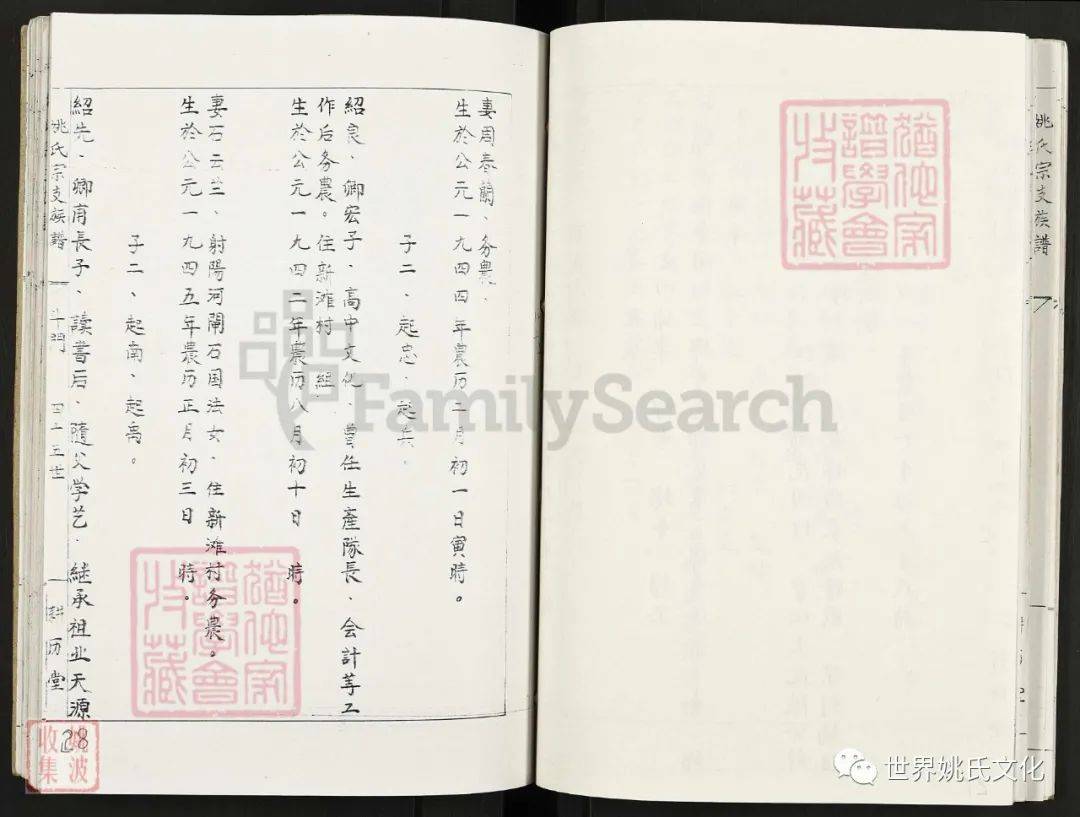 妻周春蘭、务農、
生於公元一九四四年農历二月初一日寅時。
子二、起忠、起兵、
紹良、卿宏子、高中文化、曾任生產隊長、会計等工
作后务農。住新滩村 組
生於公元一九四二年農历八月初十日 時。
妻石云兰、射陽河閘石国法女、住新滩村务農。
生於公元一九四五年農历正月初三日 時。
子二、起南、起禹。
紹先、卿甫長子、讀書后、隨父学艺、継承祖业天源
姚氏宗支族譜 斗門 四十五世 耕历堂
28
姚波
收集
猶他家
譜學會
收藏
猶他家
譜學會
收藏
姚氏宗支族譜
FamilySearch
世界姚氏文化